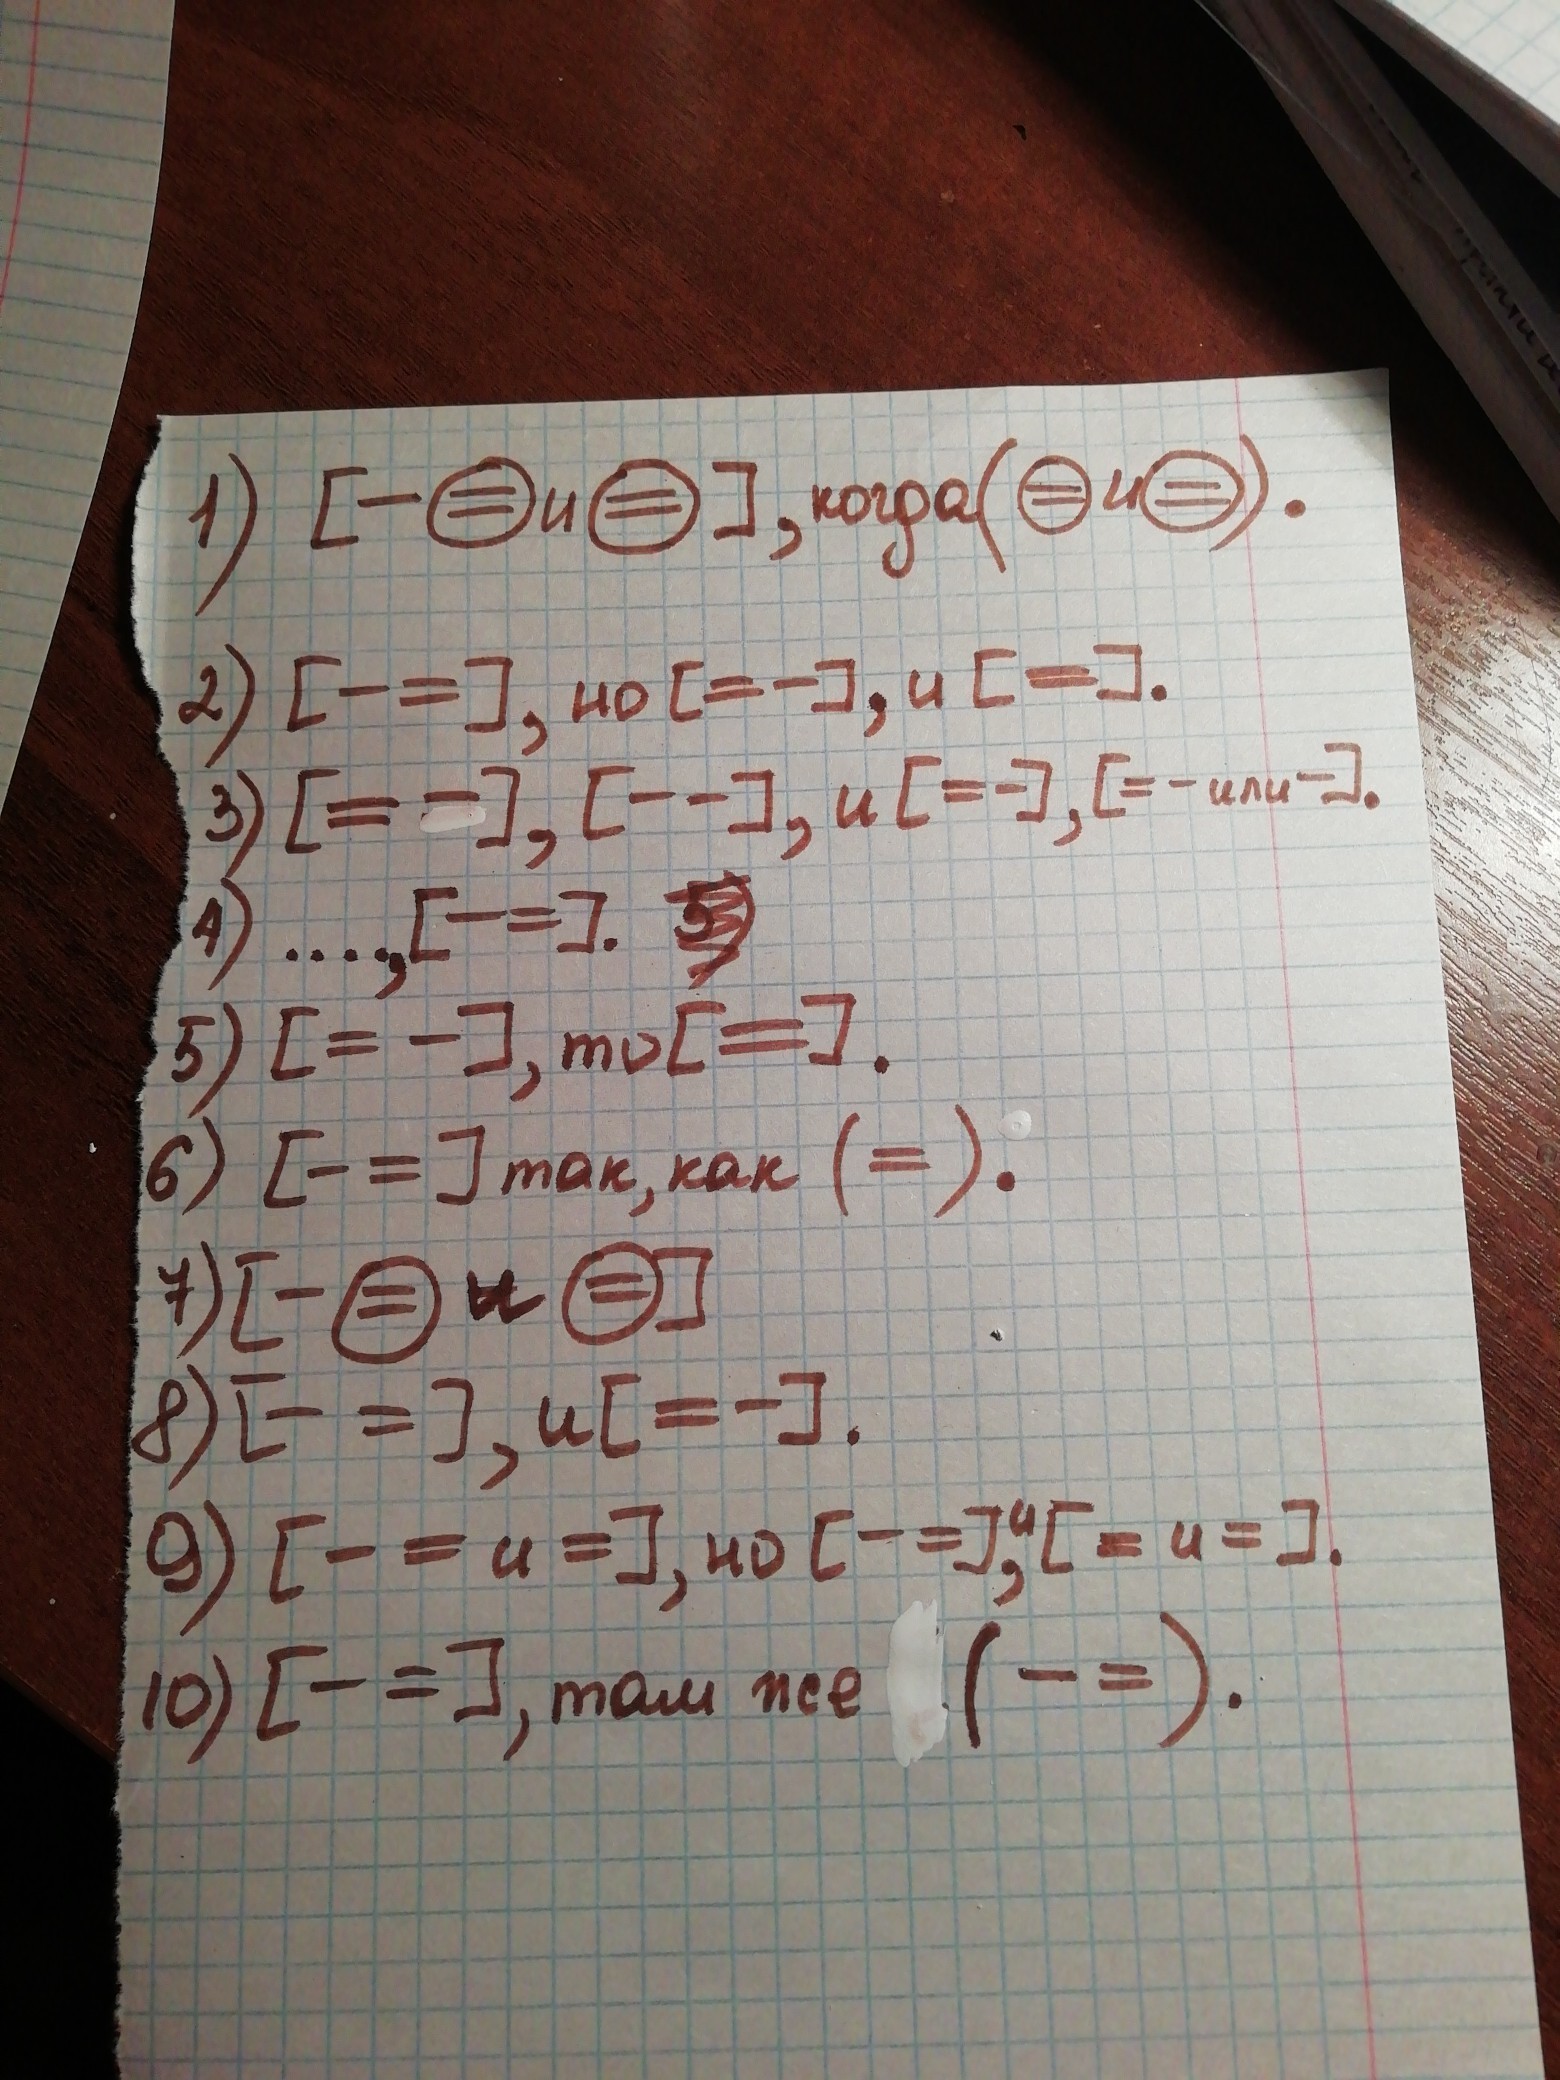 1) [- = и =], когда (= и =).
2) [- =], но [= -], и [=].
3) [= -], [- -], и [= -], [= - или -].
4) ....,[- =].
5) [= -], то [=].
6) [- =] так, как (=).
7) [- = и =]
8) [- =], и [= -].
9) [- = и =], но [- =], и [= и =].
10) [- =], там же (- =).